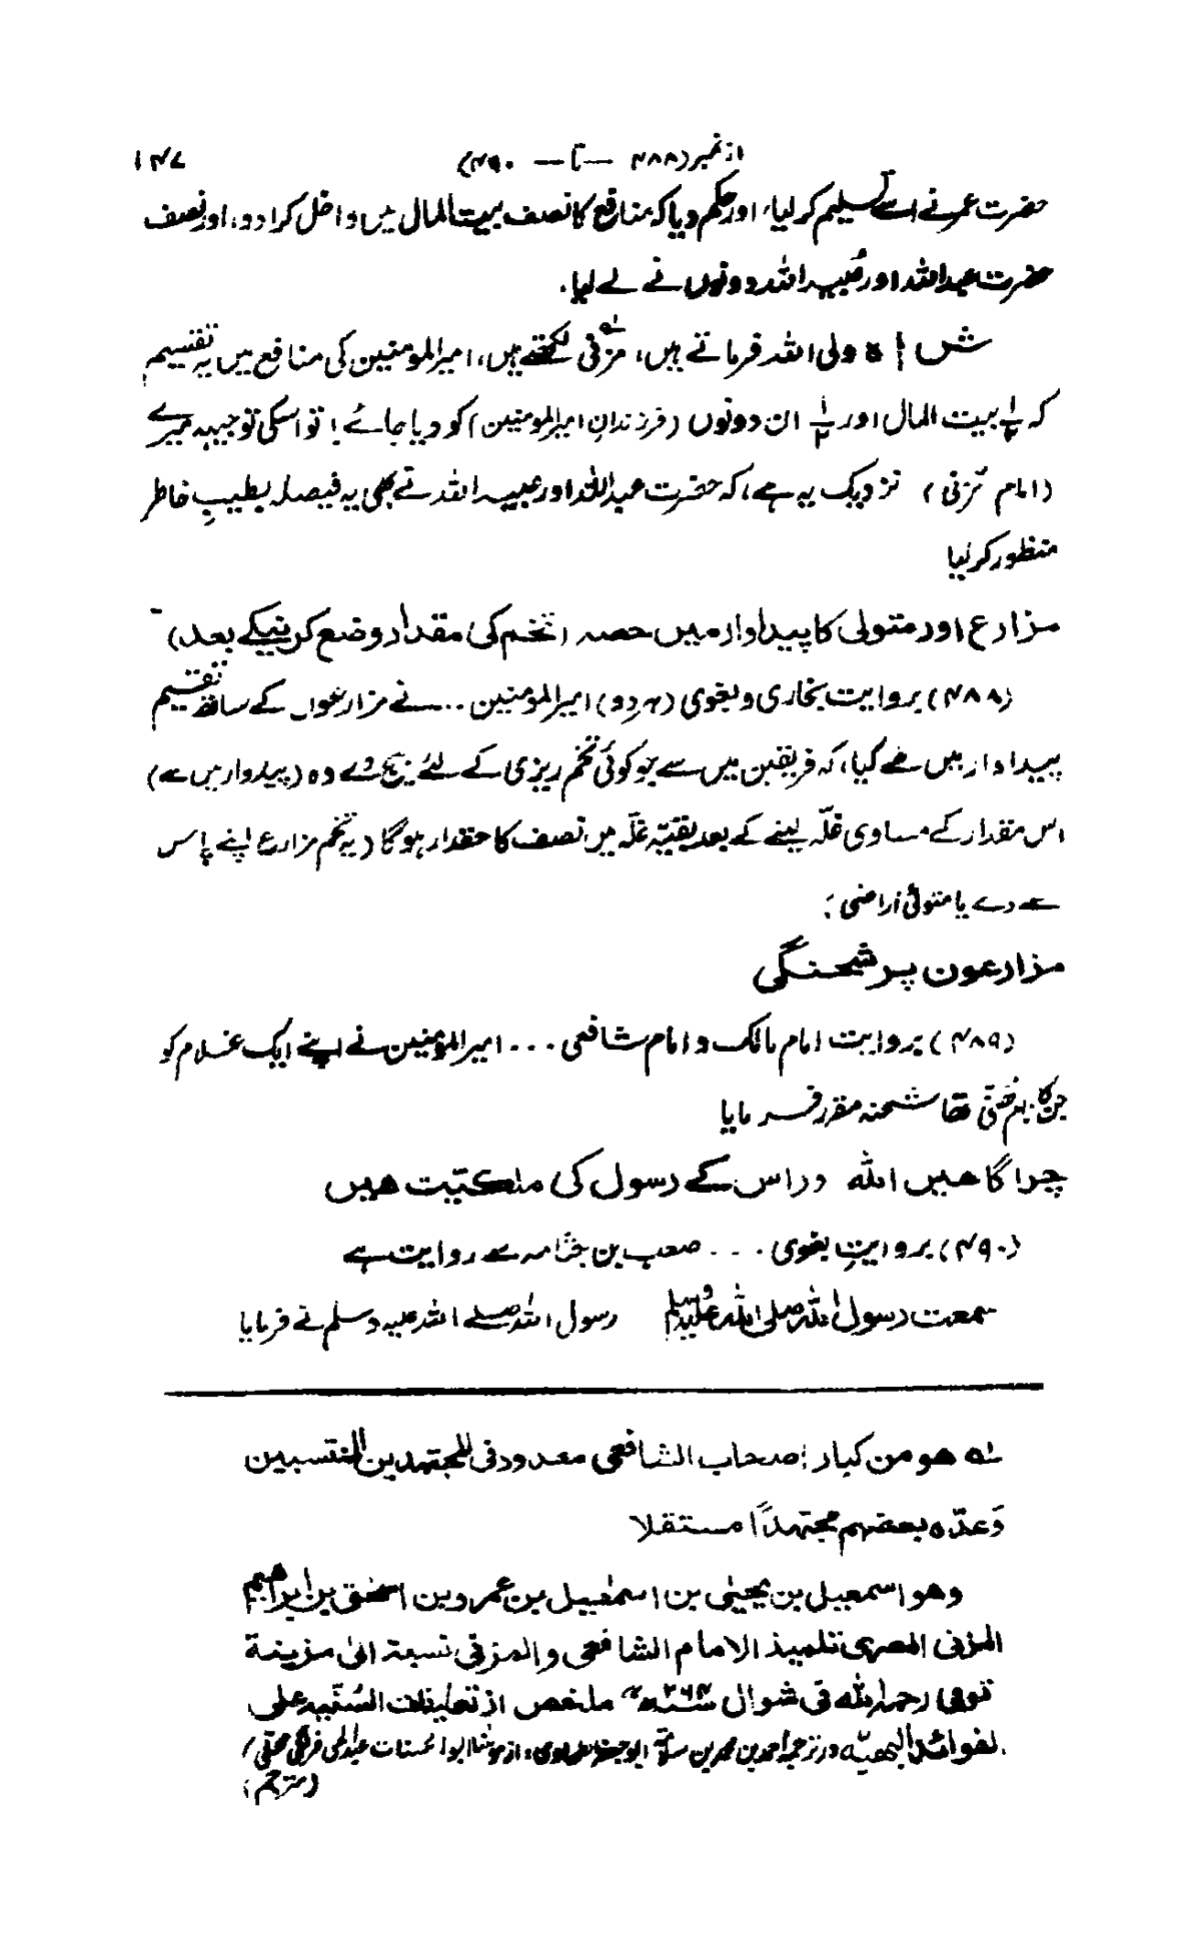 از نمبر (۴۸۸ — تا — ۴۹۰) ۱۴۷
حضرت عمر نے اسے تسلیم کر لیا، اور حکم دیا کہ منافع کا نصف بیت المال میں داخل کرا دو، اور نصف
حضرت عبداللہ اور عُبیداللہ دونوں نے لے لیا.
شاہ ولی اللہ فرماتے ہیں، مزنی لہ لکھتے ہیں، امیرالمومنین کی منافع میں یہ تقسیم
کہ ۱/۲ بیت المال اور ۱/۲ ان دونوں (فرزندانِ امیرالمومنین) کو دیا جائے! تو اسکی توجیہہ میرے
(امام مزنی) نزدیک یہ ہے، کہ حضرت عبداللہ اور عبیداللہ نے بھی یہ فیصلہ بطیبِ خاطر
منظور کر لیا
مزارع اور متولی کا پیداوار میں حصہ (تخم کی مقدار وضع کرنیکے بعد)
(۴۸۸) بروایت بخاری و بغوی (ہر دو) امیرالمومنین ... نے مزارعوں کے ساتھ تقسیم
پیداوار میں طے کیا، کہ فریقین میں سے جو کوئی تخم ریزی کے لئے بیج دے وہ (پیداوار میں سے)
اس مقدار کے مساوی غلّہ لینے کے بعد بقیّہ غلّہ میں نصف کا حقدار ہوگا (یہ تخم مزارع اپنے پاس
سے دے یا متولی اراضی:
مزارعون پر شحنگی
(۴۸۹) بروایت امام مالک و امام شافعی ... امیرالمؤمنین نے اپنے ایک غلام کو
جن کا نام ھنی تھا شحنہ مقرر فرمایا
چراگاھیں اللہ وراس کے رسول کی ملکیّت ھیں
(۴۹۰) بروایتِ بغوی ... صعب بن جثامہ سے روایت ہے
سمعت رسول اللہ صلی اللہ علیہ وسلم رسول اللہ صلے اللہ علیہ وسلم نے فرمایا
لہ ھو من کبار اصحاب الشافعی معدود فی المجتھدین المنتسبین
وَعدّہ بعضھم مجتھداً مستقلا
وھو اسمعیل بن یحییٰ بن اسمٰعیل بن عمرو بن اسحٰق بن ابراھیم
المزنی المصری تلمیذ الامام الشافعی و المزنی نسبۃ الیٰ مزینۃ
توفی رحمہ اللہ فی شوال سنۃ ۲۶۴ھ ملخص از تعلیقات السَّنیہ علی
الفوائد البھیّہ در ترجمہ احمد بن محمد بن سلامۃ ابو جعفر الطحاوی، از مولٰنا ابو الحسنات عبدالحی فرنگی محلی/
(مترجم)